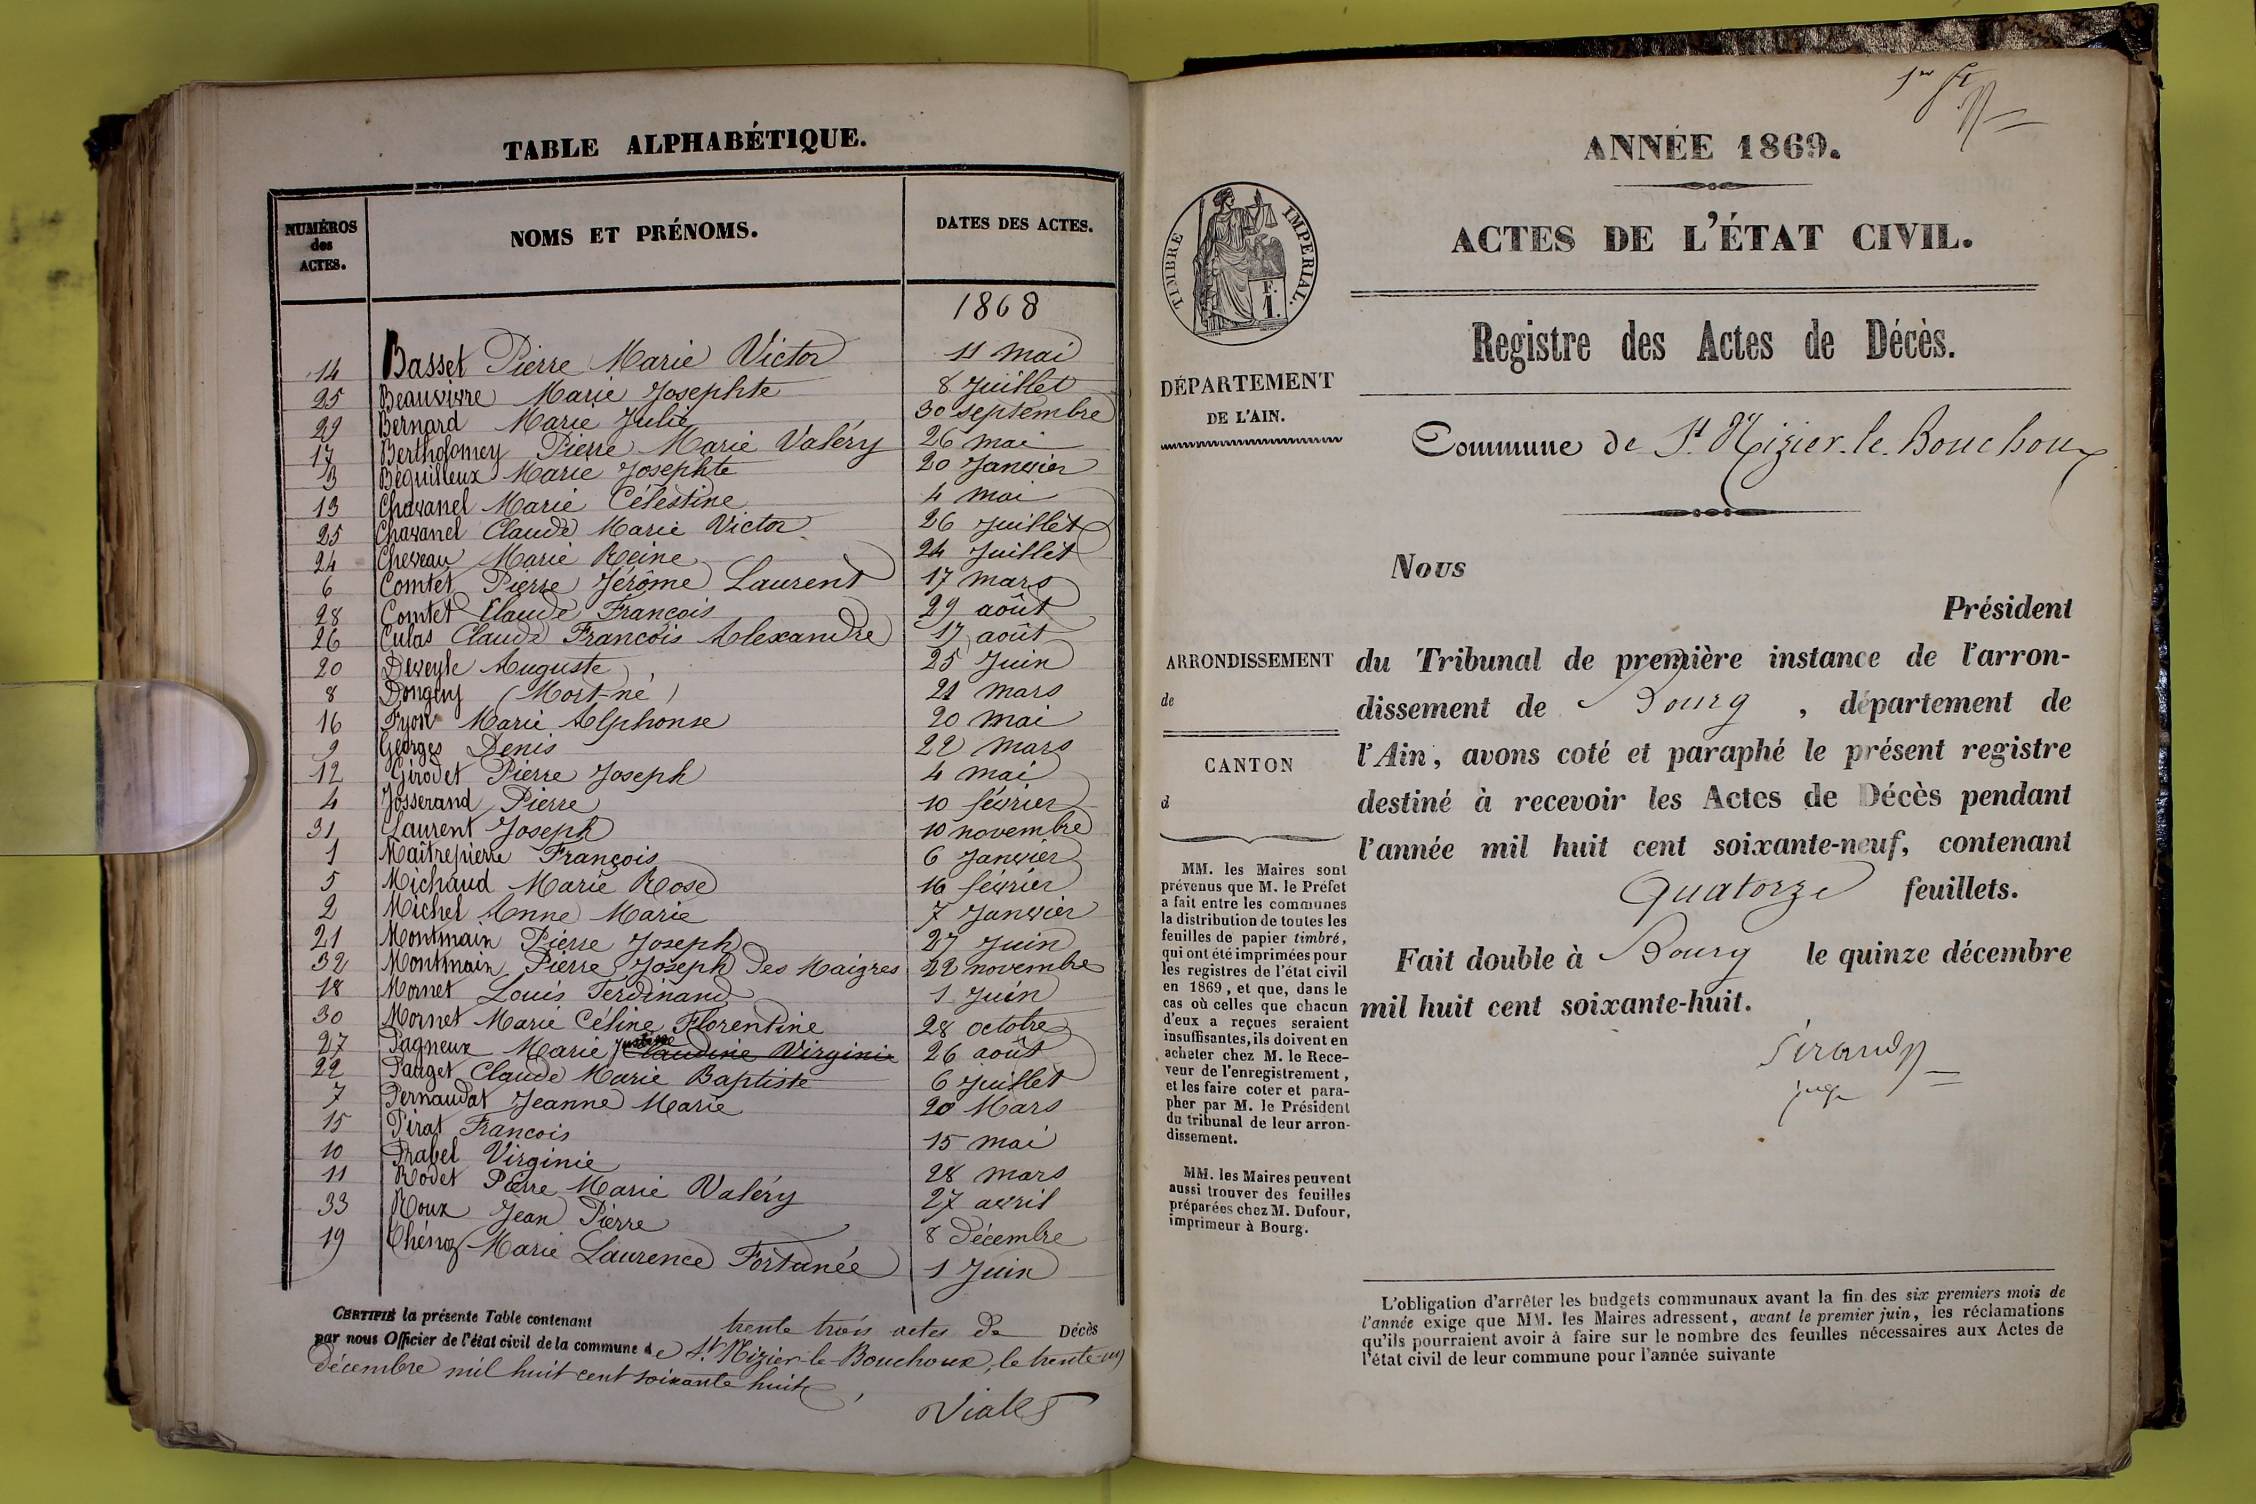 TABLE ALPHABÉTIQUE.
NUMÉROS des ACTES. NOMS ET PRÉNOMS. DATES DES ACTES.
1868
14 Basset Pierre Marie Victor 11 mai
25 Beauvivre Marie Josephte 8 Juillet
29 Bernard Marie Julie 30 septembre
17 Bertholomey Pierre Marie Valéry 26 mai
3 Bequilleux Marie Josephte 20 Janvier
13 Chavanel Marie Célestine 4 mai
25 Chavanel Claude Marie Victor 26 Juillet
24 Cheveau Marie Reine 24 Juillet
6 Comtet Pierre Jérôme Laurent 17 mars
28 Comtet Claude François 29 août
26 Culas Claude François Alexandre 17 août
20 Deveyle Auguste 25 Juin
8 Dongey (Mort-né) 21 mars
16 Fyon Marie Alphonse 20 mai
9 Georges Denis 22 mars
12 Girodet Pierre Joseph 4 mai
4 Josserand Pierre 10 février
31 Laurent Joseph 10 novembre
1 Maîtrepierre François 6 Janvier
5 Michaud Marie Rose 16 février
2 Michel Anne Marie 7 Janvier
21 Montmain Pierre Joseph 27 Juin
32 Montmain Pierre Joseph des Maigres 22 novembre
18 Mornet Louis Ferdinand 1 Juin
30 Mornet Marie Céline Florentine 28 octobre
27 Pagneux Marie Justine Claudine Virginie 26 août
22 Pauget Claude Marie Baptiste 6 Juillet
7 Pernaudat Jeanne Marie 20 Mars
15 Pirat François 15 mai
10 Prabel Virginie 28 mars
11 Rodet Pierre Marie Valéry 27 avril
33 Roux Jean Pierre 8 décembre
19 Thénoz Marie Laurence Fortunée 1 Juin
CERTIFIÉ la présente Table contenant trente trois actes de Décès
par nous Officier de l'état civil de la commune de St. Nizier-le-Bouchoux, le trente-un
décembre mil huit cent soixante huit
Viallet
1er ft
ANNÉE 1869.
ACTES DE L'ÉTAT CIVIL.
TIMBRE IMPERIAL.
F.
1.
Registre des Actes de Décès.
DÉPARTEMENT
DE L'AIN.
Commune de St. Nizier-le-Bouchoux
Nous
Président
ARRONDISSEMENT
de
CANTON
d
du Tribunal de première instance de l'arron-
dissement de Bourg, département de
l'Ain, avons coté et paraphé le présent registre
destiné à recevoir les Actes de Décès pendant
l'année mil huit cent soixante-neuf, contenant
Quatorze feuillets.
Fait double à Bourg le quinze décembre
mil huit cent soixante-huit.
juge
MM. les Maires sont
prévenus que M. le Préfet
a fait entre les communes
la distribution de toutes les
feuilles de papier timbré,
qui ont été imprimées pour
les registres de l'état civil
en 1869, et que, dans le
cas où celles que chacun
d'eux a reçues seraient
insuffisantes, ils doivent en
acheter chez M. le Rece-
veur de l'enregistrement,
et les faire coter et para-
pher par M. le Président
du tribunal de leur arron-
dissement.
MM. les Maires peuvent
aussi trouver des feuilles
préparées chez M. Dufour,
imprimeur à Bourg.
L'obligation d'arrêter les budgets communaux avant la fin des six premiers mois de
l'année exige que MM. les Maires adressent, avant le premier juin, les réclamations
qu'ils pourraient avoir à faire sur le nombre des feuilles nécessaires aux Actes de
l'état civil de leur commune pour l'année suivante